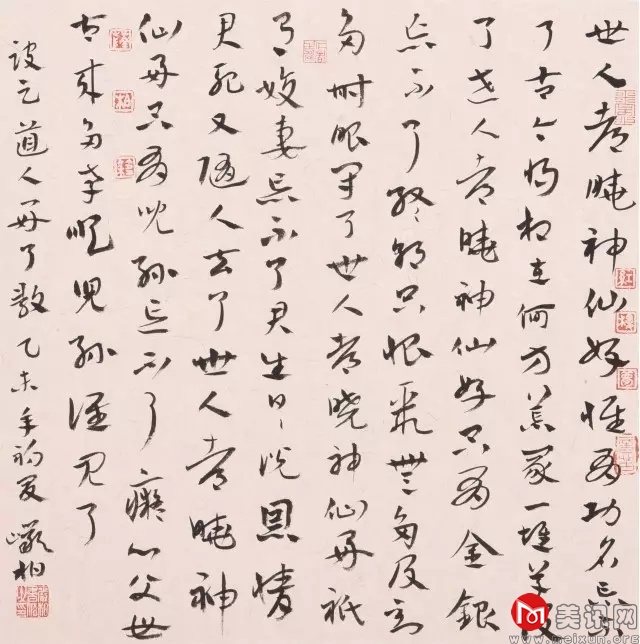 世人都曉神仙好惟有功名忘不
了古今將相在何方荒冢一堆草沒
了世人都曉神仙好只有金銀
忘不了終朝只恨聚無多及到
多時眼閉了世人都曉神仙好祇
有姣妻忘不了君生日日説恩情
君死又隨人去了世人都曉神
仙好只有兒孫忘不了癡心父母
古來多孝順兒孫誰見了
跛足道人好了歌乙未年初夏
美讯网
www.meixun.org